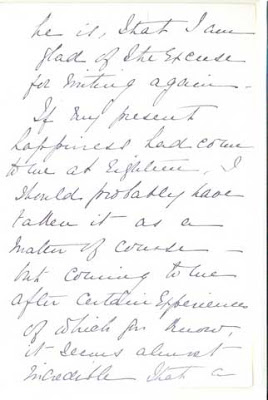 he is, that I am
glad of the Excuse
for writing again -
If my present
happiness had come
to me at Eighteen, I
should probably have
taken it as a
matter of course -
but coming to me
after certain Experiences
of which you know,
it seems almost
incredible that a